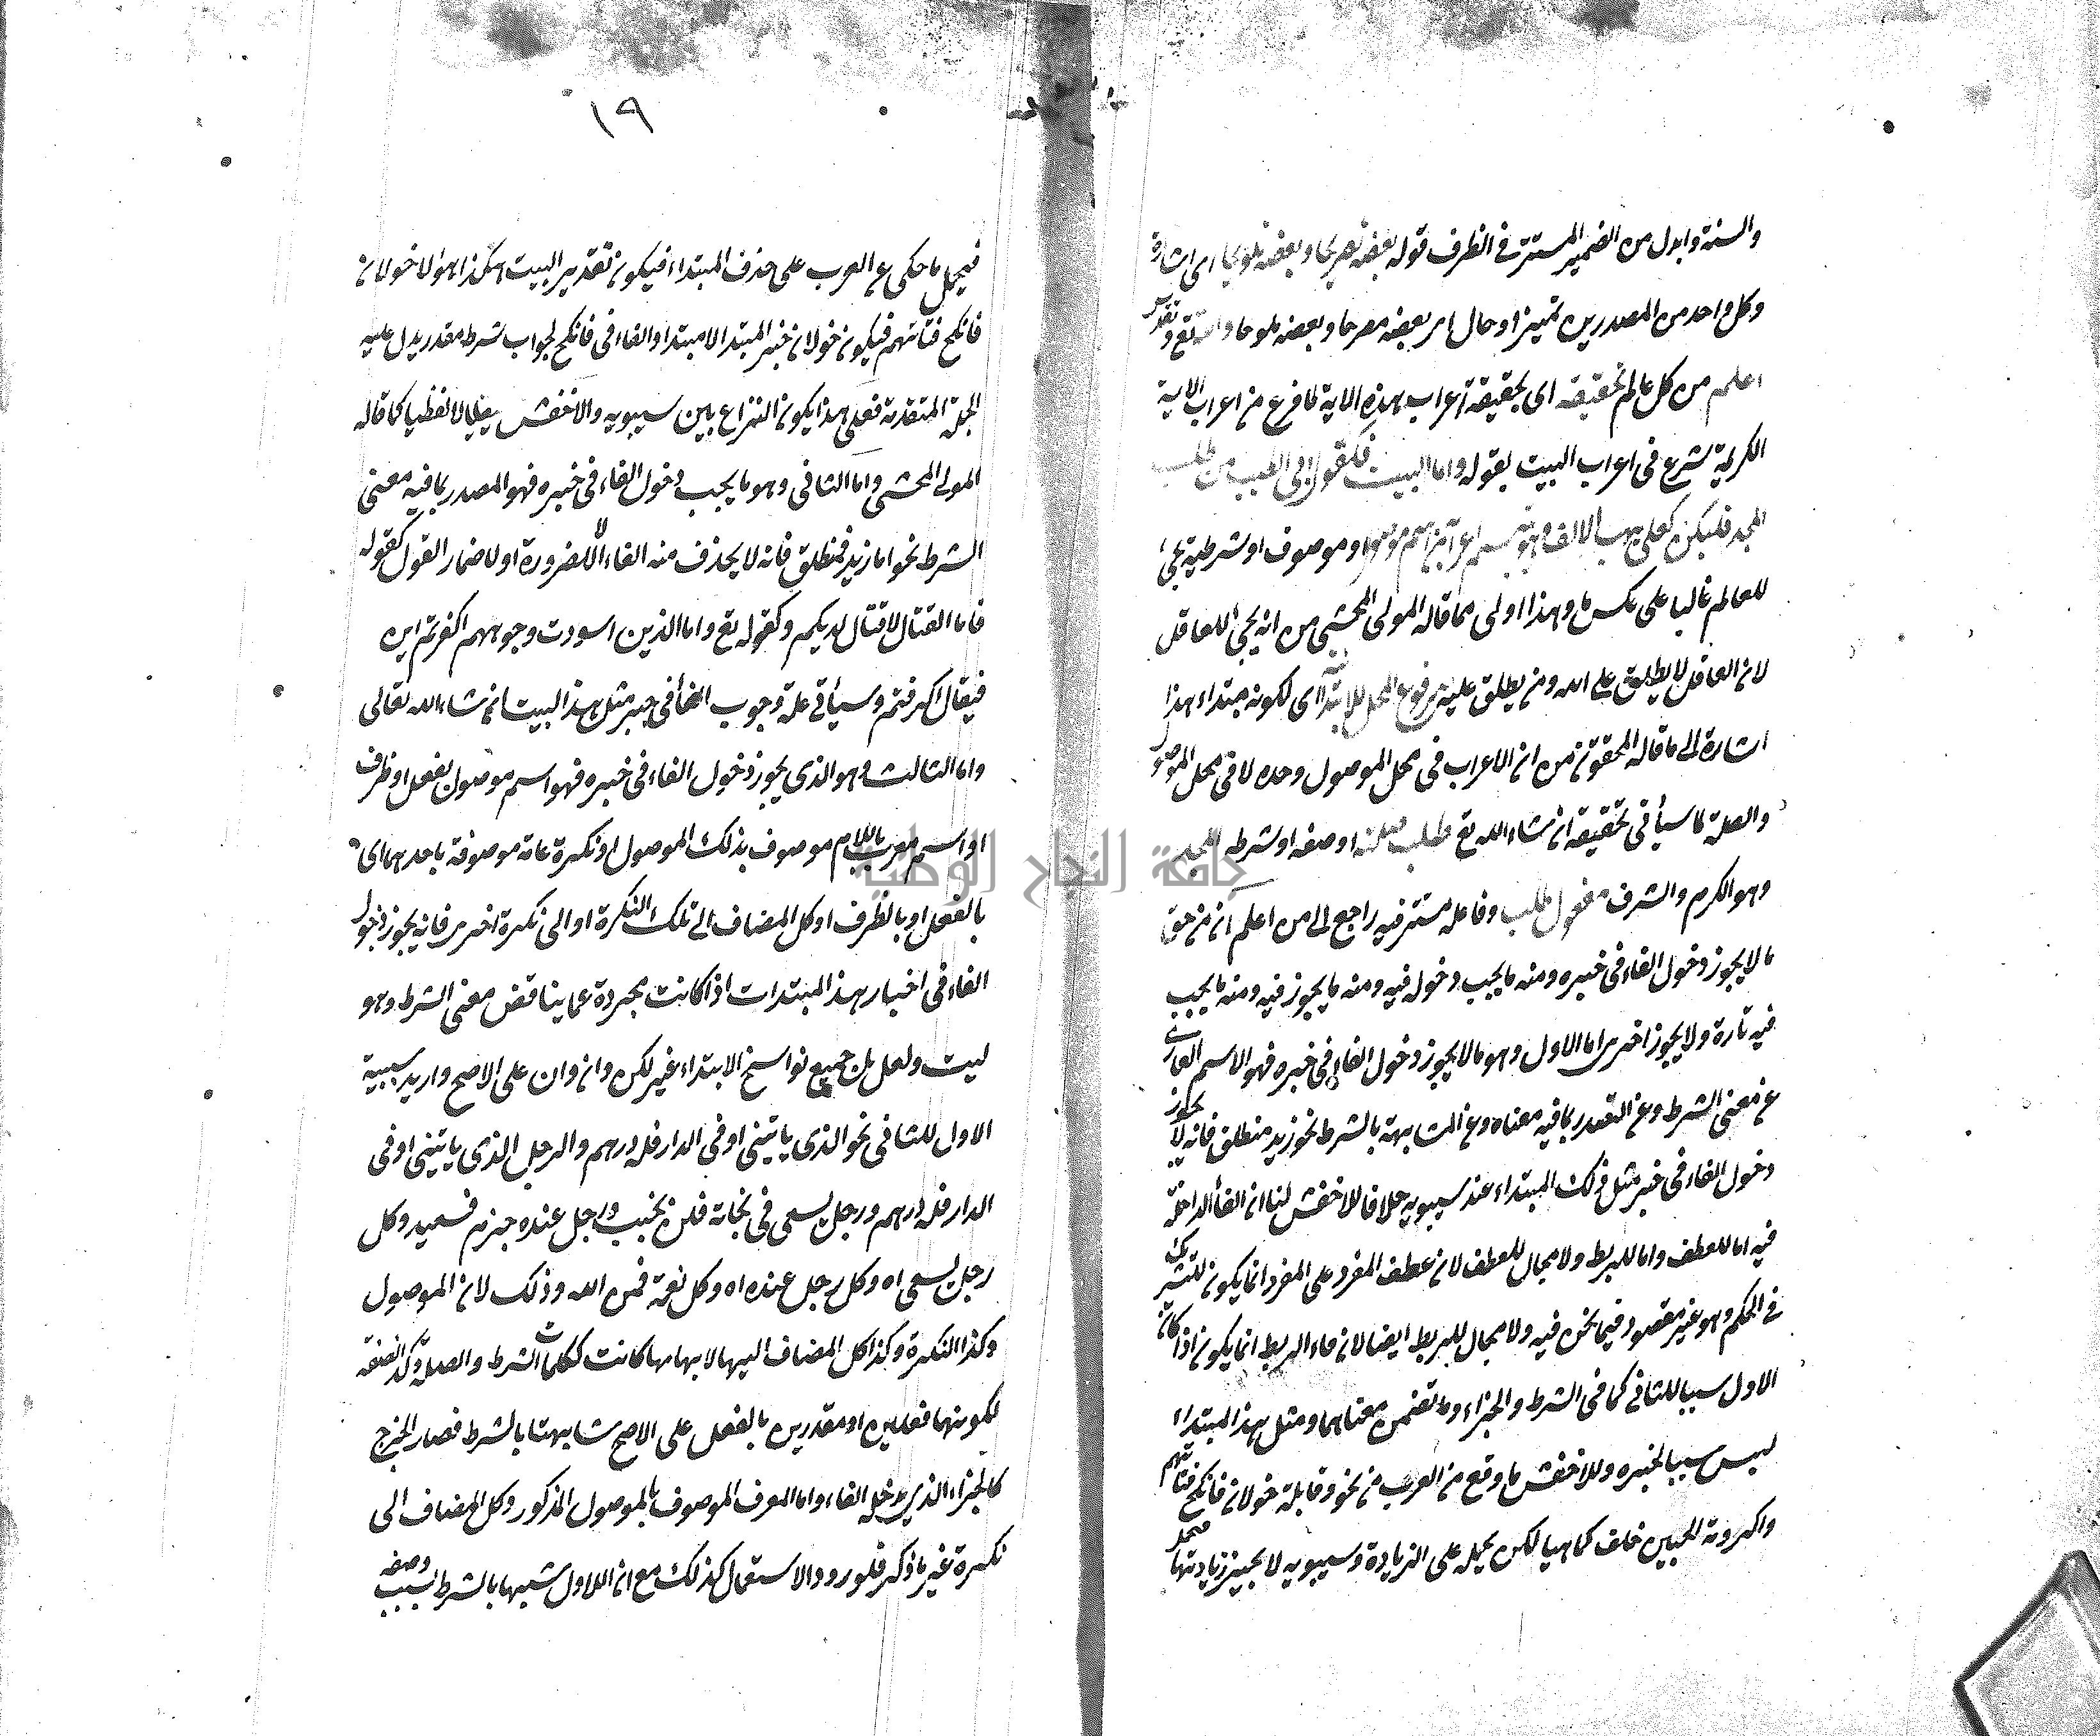 والسنة وابدل من الضمير المستتر في الظرف قوله بعضه تصريحا وبعضه تلويحا اى اشارة
وكل واحد من المصدرين تميز او حال اى بعضه مصرحا وبعضه ملوحا والله تع وتقدس
اعلم من كل عالم تحقيقه اى بحقيقة اعراب هذه الاية لما فرغ من اعراب الاية
الكريمة شرع في اعراب البيت بقوله واما البيت فلقول ابى الطيب من طلب
المجد فليكن كعلى يهب الالف وهو يبتسم اعرابه من اسم موصول او موصوف او شرطية يجئ
للعالم غالبا على عكس ما وهذا اولى مما قاله المولى المحشى من انه يجئ للعاقل
لان العاقل لا يطلق على الله ومن يطلق عليه مرفوع المحل للابتداء اى لكونه مبتداء هذا
اشارة الى ما قاله المحققون من ان الاعراب في محل الموصول وحده لا في محل الموصول
والصلة كما سيأتى تحقيقه ان شاء الله تع طلب صلته او صفه او شرطه المجد
وهو الكرم والشرف مفعول طلب وفاعله مستتر فيه راجع الى من اعلم ان من حق
ما لا يجوز دخول الفاء في خبره ومنه ما يجب دخوله فيه ومنه ما يجوز فيه ومنه ما يجب
فيه تارة ولا يجوز اخرى اما الاول وهو ما لا يجوز دخول الفاء في خبره فهو الاسم العارى
عن معنى الشرط وعن التصدر بما فيه معناه وعن المشابهة بالشرط نحو زيد منطلق فانه لا يجوز
دخول الفاء في خبر مثل ذلك المبتداء عند سيبويه خلافا للاخفش لنا ان الفاء الداخلة
فيه اما للعطف واما للربط ولا مجال للعطف لان عطف المفرد على المفرد انما يكون للتشريك
في الحكم وهو غير مقصود فيما نحن فيه ولا مجال للربط ايضا لان فاء الربط انما يكون اذا كان
الاول سببا للثانى كما فى الشرط والجزاء وما تضمن معناهما ومثل هذا المبتداء
ليس سببا لخبره وللاخفش ما وقع من العرب من نحو وقائلة خولان فانكح فتاتهم
واكرومة الحيين خلف كما هيا لكن يحمله على الزيادة وسيبويه لا يجيز زيادتها
١٩
فيحمل ما حكى عن العرب على حذف المبتداء فيكون تقدير البيت هكذا هؤلاء خولان
فانكح فتاتهم فيكون خولان خبر المبتدا لا مبتدا والفاء فى فانكح لجواب شرط مقدر يدل عليه
الجملة المتقدمة فعلى هذا يكون النزاع بين سيبويه والاخفش يعليا لا لفظيا كما قاله
المولى المحشى واما الثانى وهو ما يجب دخول الفاء فى خبره فهو المصدر بما فيه معنى
الشرط نحو اما زيد فمنطلق فانه لا يحذف منه الفاء الا للضرورة او لاضمار القول كقوله
فاما القتال لا قتال لديكم وكقوله تع واما الذين اسودت وجوههم اكفرتم اين
فيقال اكفرتم وسيأتى علة وجوب الفاء فى خبر مثل هذا البيت ان شاء الله تعالى
واما الثالث وهو الذى يجوز دخول الفاء فى خبره فهو اسم موصول بفعل او ظرف
او اسم معرف باللام موصوف بذلك الموصول او نكرة عامة موصوفة باحدهما اى
بالفعل او بالظرف او كل المضاف الى تلك النكرة او الى نكرة اخرى فانه يجوز دخول
الفاء فى اخبار هذا المبتدات اذا كانت مجردة عما يناقض معنى الشرط وهو
ليت ولعل بل جميع نواسخ الابتداء غير لكن وان وان على الاصح واريد سببية
الاول للثانى نحو الذى ياتينى او فى الدار فله درهم والرجل الذى ياتينى او فى
الدار فله درهم ورجل يسعى فى نجاته فلن يخيب ورجل عنده حزم فسعيد وكل
رجل يسعى اه وكل رجل عنده اه وكل نعمة فمن الله وذلك لان الموصول
وكذا النكرة وكذا كل المضاف اليها لابهامها كانت ككلمات الشرط والصلة وكذا الصفة
لكونهما فعلين او مقدرين بالفعل على الاصح شابهتا بالشرط فصار الخبر ح
كالجزاء الذى يدخله الفاء واما المعرف الموصوف بالموصول المذكور وكل المضاف الى
نكرة غير ما ذكر فلورود الاستعمال كذلك مع ان للاول شبها بالشرط بسبب وصفه